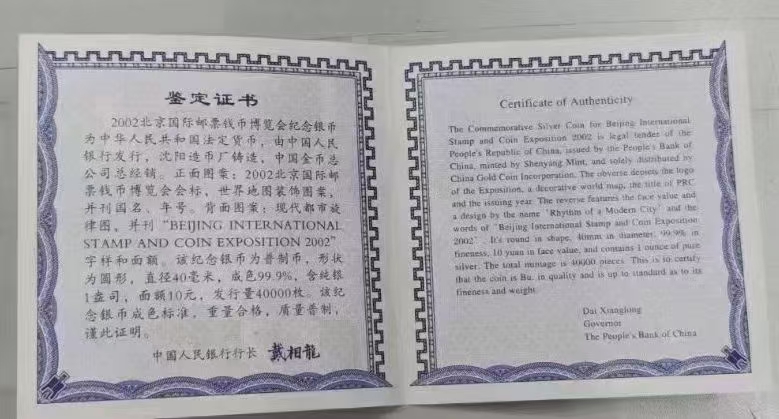 鉴定证书
2002北京国际邮票钱币博览会纪念银币
为中华人民共和国法定货币，由中国人民
银行发行，沈阳造币厂铸造，中国金币总
公司总经销。正面图案：2002北京国际邮
票钱币博览会会标，世界地图装饰图案，
并刊国名、年号。背面图案：现代都市旋
律图，并刊“BEIJING INTERNATIONAL
STAMP AND COIN EXPOSITION 2002”
字样和面额。该纪念银币为普制币，形状
为圆形，直径40毫米，成色99.9%，含纯银
1盎司，面额10元，发行量40000枚。该纪
念银币成色标准，重量合格，质量普制，
谨此证明。
中国人民银行行长 戴相龍
Certificate of Authenticity
The Commemorative Silver Coin for Beijing International
Stamp and Coin Exposition 2002 is legal tender of the
People's Republic of China, issued by the People's Bank of
China, minted by Shenyang Mint, and solely distributed by
China Gold Coin Incorporation. The obverse depicts the logo
of the Exposition, a decorative world map, the title of PRC
and the issuing year. The reverse features the face value and
a design by the name "Rhythm of a Modern City" and the
words of "Beijing International Stamp and Coin Exposition
2002". It's round in shape, 40mm in diameter, 99.9% in
fineness, 10 yuan in face value, and contains 1 ounce of pure
silver. The total mintage is 40000 pieces. This is to certify
that the coin is Bu. in quality and is up to standard as to its
fineness and weight.
Dai Xianglong
Governor
The People's Bank of China